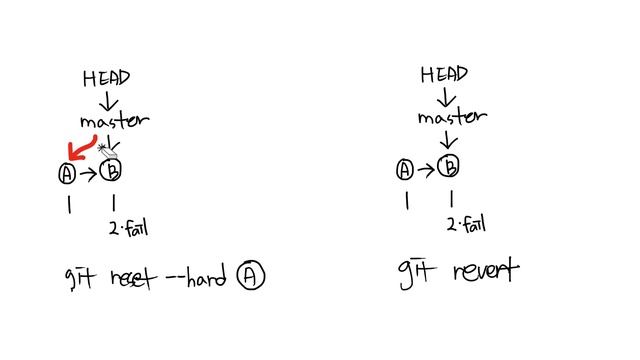 HEAD
master
A → B
1 1
2.fail
git reset --hard A
HEAD
master
A → B
1 1
2.fail
git revert